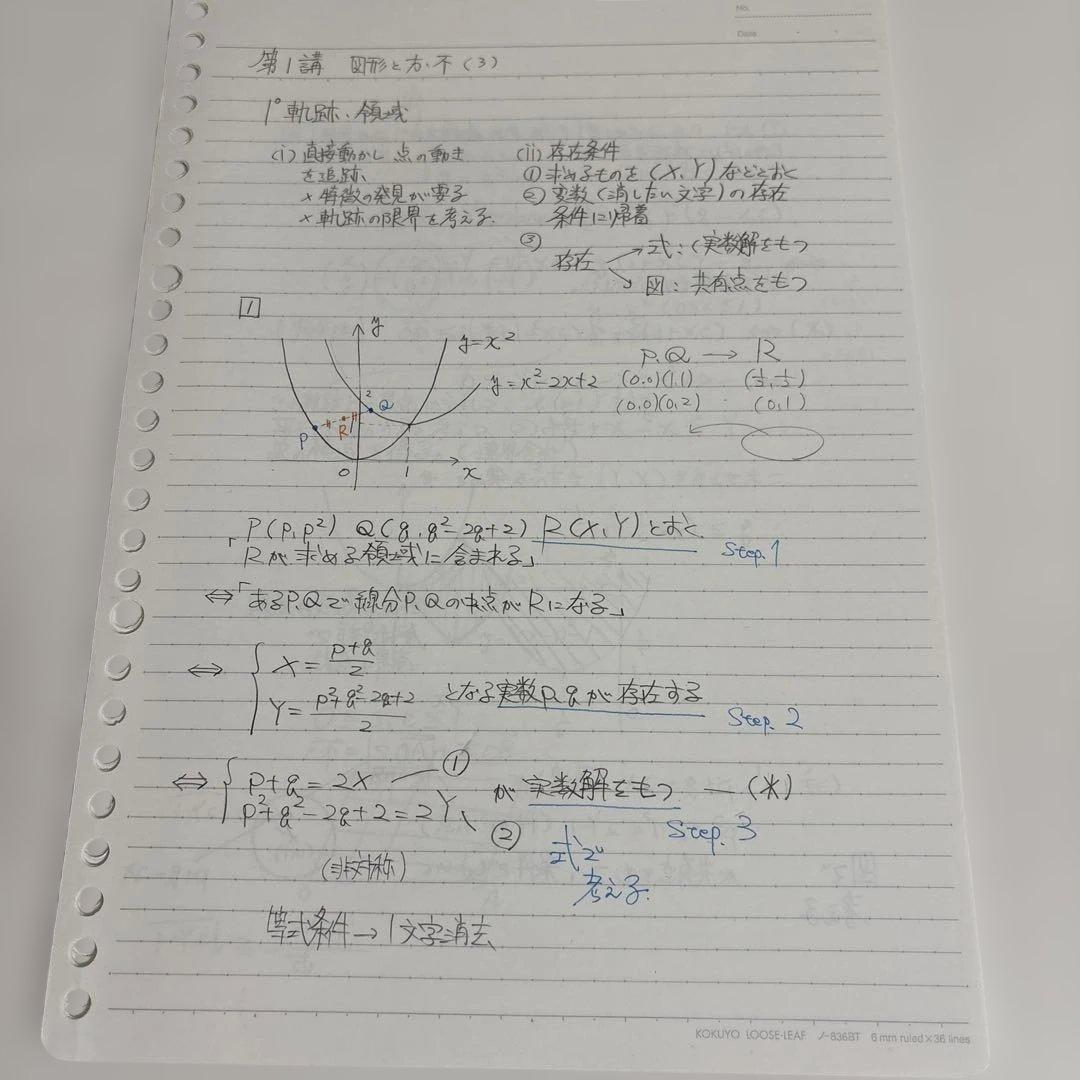 No.
Date
第1講 図形と方・不(3)
1° 軌跡・領域
(i) 直接動かし 点の動き
を追跡、
× 特徴の発見が要る
× 軌跡の限界を考える.
(ii) 存在条件
① 求めるものを(X, Y)などとおく
② 変数(消したい文字)の存在
条件に帰着
③ 存在
式:(実数解をもつ
図: 共有点をもつ
1
y
y=x²
y=x²-2x+2
2
Q
P
R
0
1
x
P.Q → R
(0.0)(1.1) (½,½)
(0,0)(0,2) (0,1)
「P(p,p²) Q(q,q²-2q+2) R(X,Y)とおく
Step.1
Rが求める領域に含まれる」
⇔「あるP.Qで線分P.Qの中点がRになる」
⇔ { X = p+q/2
Y = p²+q²-2q+2/2 となる実数p.qが存在する
Step. 2
⇔ { p+q=2X ①
p²+q²-2q+2=2Y ② が実数解をもつ ―(*)
Step. 3
(非対称)
式で
考える.
等式条件→1文字消去
KOKUYO LOOSE-LEAF ノ-836BT 6 mm ruled×36 lines